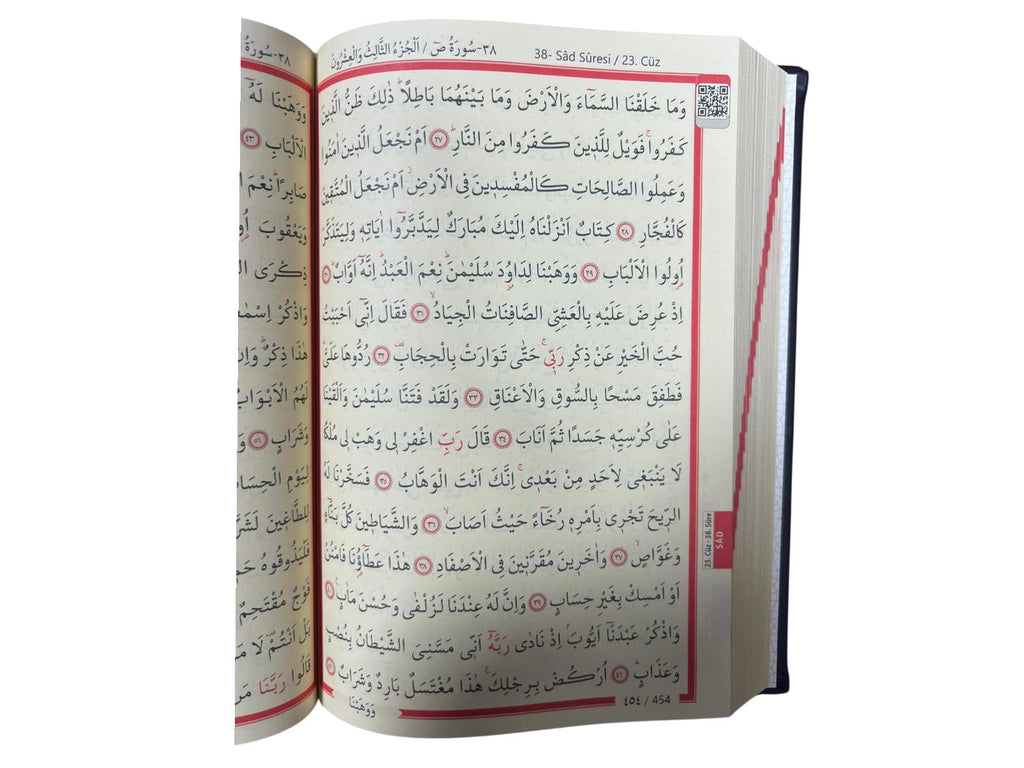 ٣٨-سُورَةُ صٓ / اَلْجُزْءُ الثَّالِثُ وَالْعِشْرُونَ
38- Sâd Sûresi / 23. Cüz
وَمَا خَلَقْنَا السَّمَٓاءَ وَالْاَرْضَ وَمَا بَيْنَهُمَا بَاطِلًاۜ ذٰلِكَ ظَنُّ الَّذ۪ينَ
كَفَرُواۚ فَوَيْلٌ لِلَّذ۪ينَ كَفَرُوا مِنَ النَّارِۜ ﴿٢٧﴾ اَمْ نَجْعَلُ الَّذ۪ينَ اٰمَنُوا
وَعَمِلُوا الصَّالِحَاتِ كَالْمُفْسِد۪ينَ فِي الْاَرْضِۘ اَمْ نَجْعَلُ الْمُتَّق۪ينَ
كَالْفُجَّارِ ﴿٢٨﴾ كِتَابٌ اَنْزَلْنَاهُ اِلَيْكَ مُبَارَكٌ لِيَدَّبَّرُٓوا اٰيَاتِه۪ وَلِيَتَذَكَّرَ
اُو۬لُوا الْاَلْبَابِ ﴿٢٩﴾ وَوَهَبْنَا لِدَاوُ۫دَ سُلَيْمٰنَۜ نِعْمَ الْعَبْدُۜ اِنَّهُٓ اَوَّابٌۜ ﴿٣٠﴾
اِذْ عُرِضَ عَلَيْهِ بِالْعَشِيِّ الصَّافِنَاتُ الْجِيَادُۙ ﴿٣١﴾ فَقَالَ اِنّ۪ٓي اَحْبَبْتُ
حُبَّ الْخَيْرِ عَنْ ذِكْرِ رَبّ۪يۚ حَتّٰى تَوَارَتْ بِالْحِجَابِ۠ ﴿٣٢﴾ رُدُّوهَا عَلَيَّۜ
فَطَفِقَ مَسْحًا بِالسُّوقِ وَالْاَعْنَاقِ ﴿٣٣﴾ وَلَقَدْ فَتَنَّا سُلَيْمٰنَ وَاَلْقَيْنَا
عَلٰى كُرْسِيِّه۪ جَسَدًا ثُمَّ اَنَابَ ﴿٣٤﴾ قَالَ رَبِّ اغْفِرْ ل۪ي وَهَبْ ل۪ي مُلْكًا
لَا يَنْبَغ۪ي لِاَحَدٍ مِنْ بَعْد۪يۚ اِنَّكَ اَنْتَ الْوَهَّابُ ﴿٣٥﴾ فَسَخَّرْنَا لَهُ
الرّ۪يحَ تَجْر۪ي بِاَمْرِه۪ رُخَٓاءً حَيْثُ اَصَابَۙ ﴿٣٦﴾ وَالشَّيَاط۪ينَ كُلَّ بَنَّٓاءٍ
وَغَوَّاصٍۙ ﴿٣٧﴾ وَاٰخَر۪ينَ مُقَرَّن۪ينَ فِي الْاَصْفَادِ ﴿٣٨﴾ هٰذَا عَطَٓاؤُ۬نَا فَامْنُنْ
اَوْ اَمْسِكْ بِغَيْرِ حِسَابٍ ﴿٣٩﴾ وَاِنَّ لَهُ عِنْدَنَا لَزُلْفٰى وَحُسْنَ مَاٰبٍ۟ ﴿٤٠﴾
وَاذْكُرْ عَبْدَنَٓا اَيُّوبَۢ اِذْ نَادٰى رَبَّهُٓ اَنّ۪ي مَسَّنِيَ الشَّيْطَانُ بِنُصْبٍ
وَعَذَابٍۜ ﴿٤١﴾ اُرْكُضْ بِرِجْلِكَۚ هٰذَا مُغْتَسَلٌ بَارِدٌ وَشَرَابٌ ﴿٤٢﴾
وَوَهَبْنَا
٤٥٤ / 454
23. Cüz - 38. Sûre
SÂD
٣٨-سُورَةُ
وَوَهَبْنَا لَهُٓ
الْاَلْبَابِ ﴿٤٣﴾
صَابِرًاۜ نِعْمَ
وَيَعْقُوبَ
ذِكْرَى
وَاذْكُرْ
هٰذَا ذِكْرٌۜ وَاِنَّ
لَهُمُ الْاَبْوَابُ
وَشَرَابٍ ﴿٥١﴾
لِيَوْمِ الْحِسَابِ
لِلطَّاغ۪ينَ لَشَرَّ
فَلْيَذُوقُوهُ
فَوْجٌ مُقْتَحِمٌ
بَلْ اَنْتُمْ۠ لَا
قَالُوا رَبَّنَا مَنْ